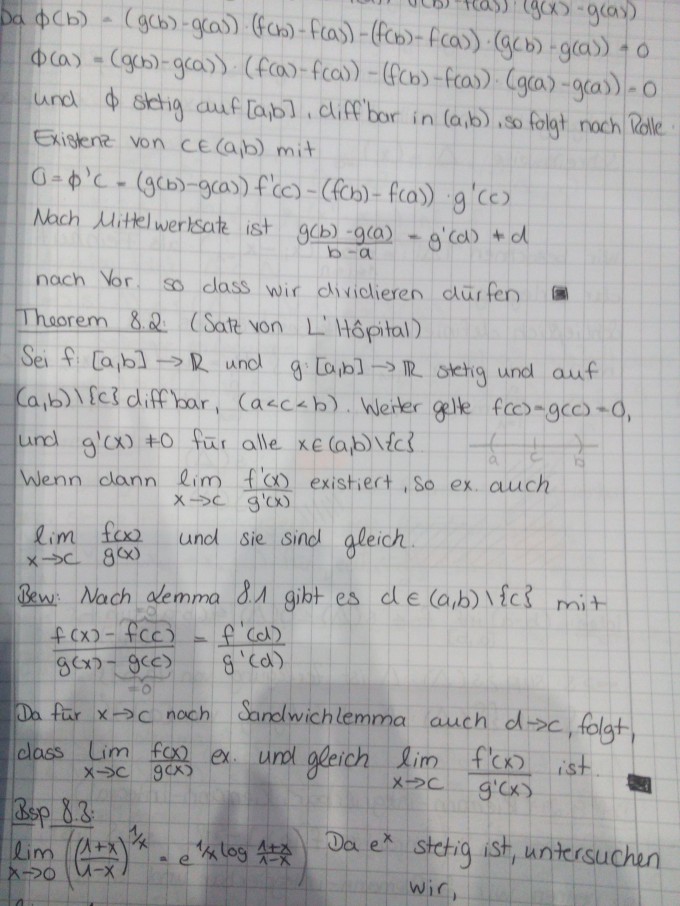 f(b) - f(a)) · (g(x) - g(a))
Da ϕ(b) = (g(b) - g(a)) · (f(b) - f(a)) - (f(b) - f(a)) · (g(b) - g(a)) = 0
ϕ(a) = (g(b) - g(a)) · (f(a) - f(a)) - (f(b) - f(a)) · (g(a) - g(a)) = 0
und ϕ stetig auf [a,b], diff'bar in (a,b), so folgt nach Rolle
Existenz von c∈(a,b) mit
0 = ϕ'c = (g(b) - g(a)) f'(c) - (f(b) - f(a)) · g'(c)
Nach Mittelwertsatz ist (g(b) - g(a))/(b - a) = g'(d) ≠ d
nach Vor. so dass wir dividieren dürfen ■
Theorem 8.2: (Satz von L'Hôpital)
Sei f: [a,b] → ℝ und g: [a,b] → ℝ stetig und auf
(a,b)\{c} diffbar, (a<c<b). Weiter gelte f(c) = g(c) = 0,
und g'(x) ≠ 0 für alle x∈(a,b)\{c}
a c b
Wenn dann lim x→c f'(x)/g'(x) existiert, so ex. auch
lim x→c f(x)/g(x) und sie sind gleich.
Bew: Nach Lemma 8.1 gibt es d∈(a,b)\{c} mit
=0
(f(x) - f(c))/(g(x) - g(c)) = f'(d)/g'(d)
=0
Da für x→c nach Sandwichlemma auch d→c, folgt,
dass lim x→c f(x)/g(x) ex. und gleich lim x→c f'(x)/g'(x) ist. ■
Bsp 8.3:
lim x→0 (((1+x)/(1-x))^1/x = e^1/x log (1+x)/(1-x)) Da e^x stetig ist, untersuchen
wir,